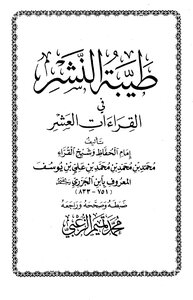 طَيِّبَةُ النَّشْرِ
في
القِرَاءَاتِ العَشْرِ
تأليف
إمَامِ الحُفَّاظِ وَشَيْخِ القُرَّاءِ
مُحَمَّدِ بْنِ مُحَمَّدِ بْنِ مُحَمَّدِ بْنِ عَلِيِّ بْنِ يُوسُفَ
المَعْرُوفِ بِابْنِ الجَزَرِيِّ
(٧٥١ - ٨٣٣)
ضَبَطَهُ وَصَحَّحَهُ وَرَاجَعَهُ
محمد تميم الزعبي